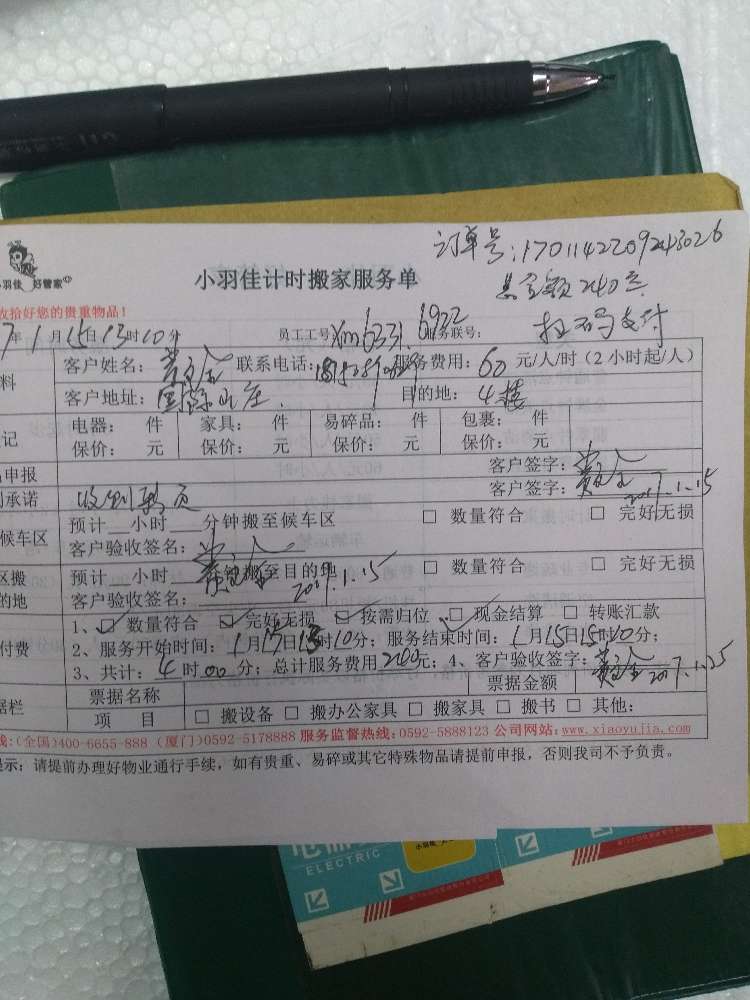 订单号:1701142209243026
小羽佳 好管家
小羽佳计时搬家服务单
总金额240元
收拾好您的贵重物品!
扫码支付
7年1月15日13时10分 员工工号:Xm6331.6922 服务联号:
客户姓名: 联系电话: 服务费用:60元/人/时(2小时起/人)
客户地址:国际山庄. 目的地:4楼
电器: 件 家具: 件 易碎品: 件 包裹: 件
保价: 元 保价: 元 保价: 元 保价: 元
申报 客户签字:
承诺 收到转页 客户签字: 2017.1.15
预计 小时 分钟搬至候车区 □ 数量符合 □ 完好无损
候车区 客户验收签名:
区搬 预计 小时 分钟搬至目的地 □ 数量符合 □ 完好无损
的地 客户验收签名: 2017.1.15
1、☑ 数量符合 ☑ 完好无损 ☑ 按需归位 ☑ 现金结算 □ 转账汇款
付费 2、服务开始时间:1月15日13时10分;服务结束时间:1月15日15时10分;
3、共计:4时00分;总计服务费用240元;4、客户验收签字: 2017.1.15
票据名称 票据金额
据栏 项 目 □ 搬设备 □ 搬办公家具 □ 搬家具 □ 搬书 □ 其他:
线:(全国)400-6655-888 (厦门)0592-5178888 服务监督热线:0592-5888123 公司网站:www.xiaoyujia.com
提示:请提前办理好物业通行手续,如有贵重、易碎或其它特殊物品请提前申报,否则我司不予负责。
ELECTRIC